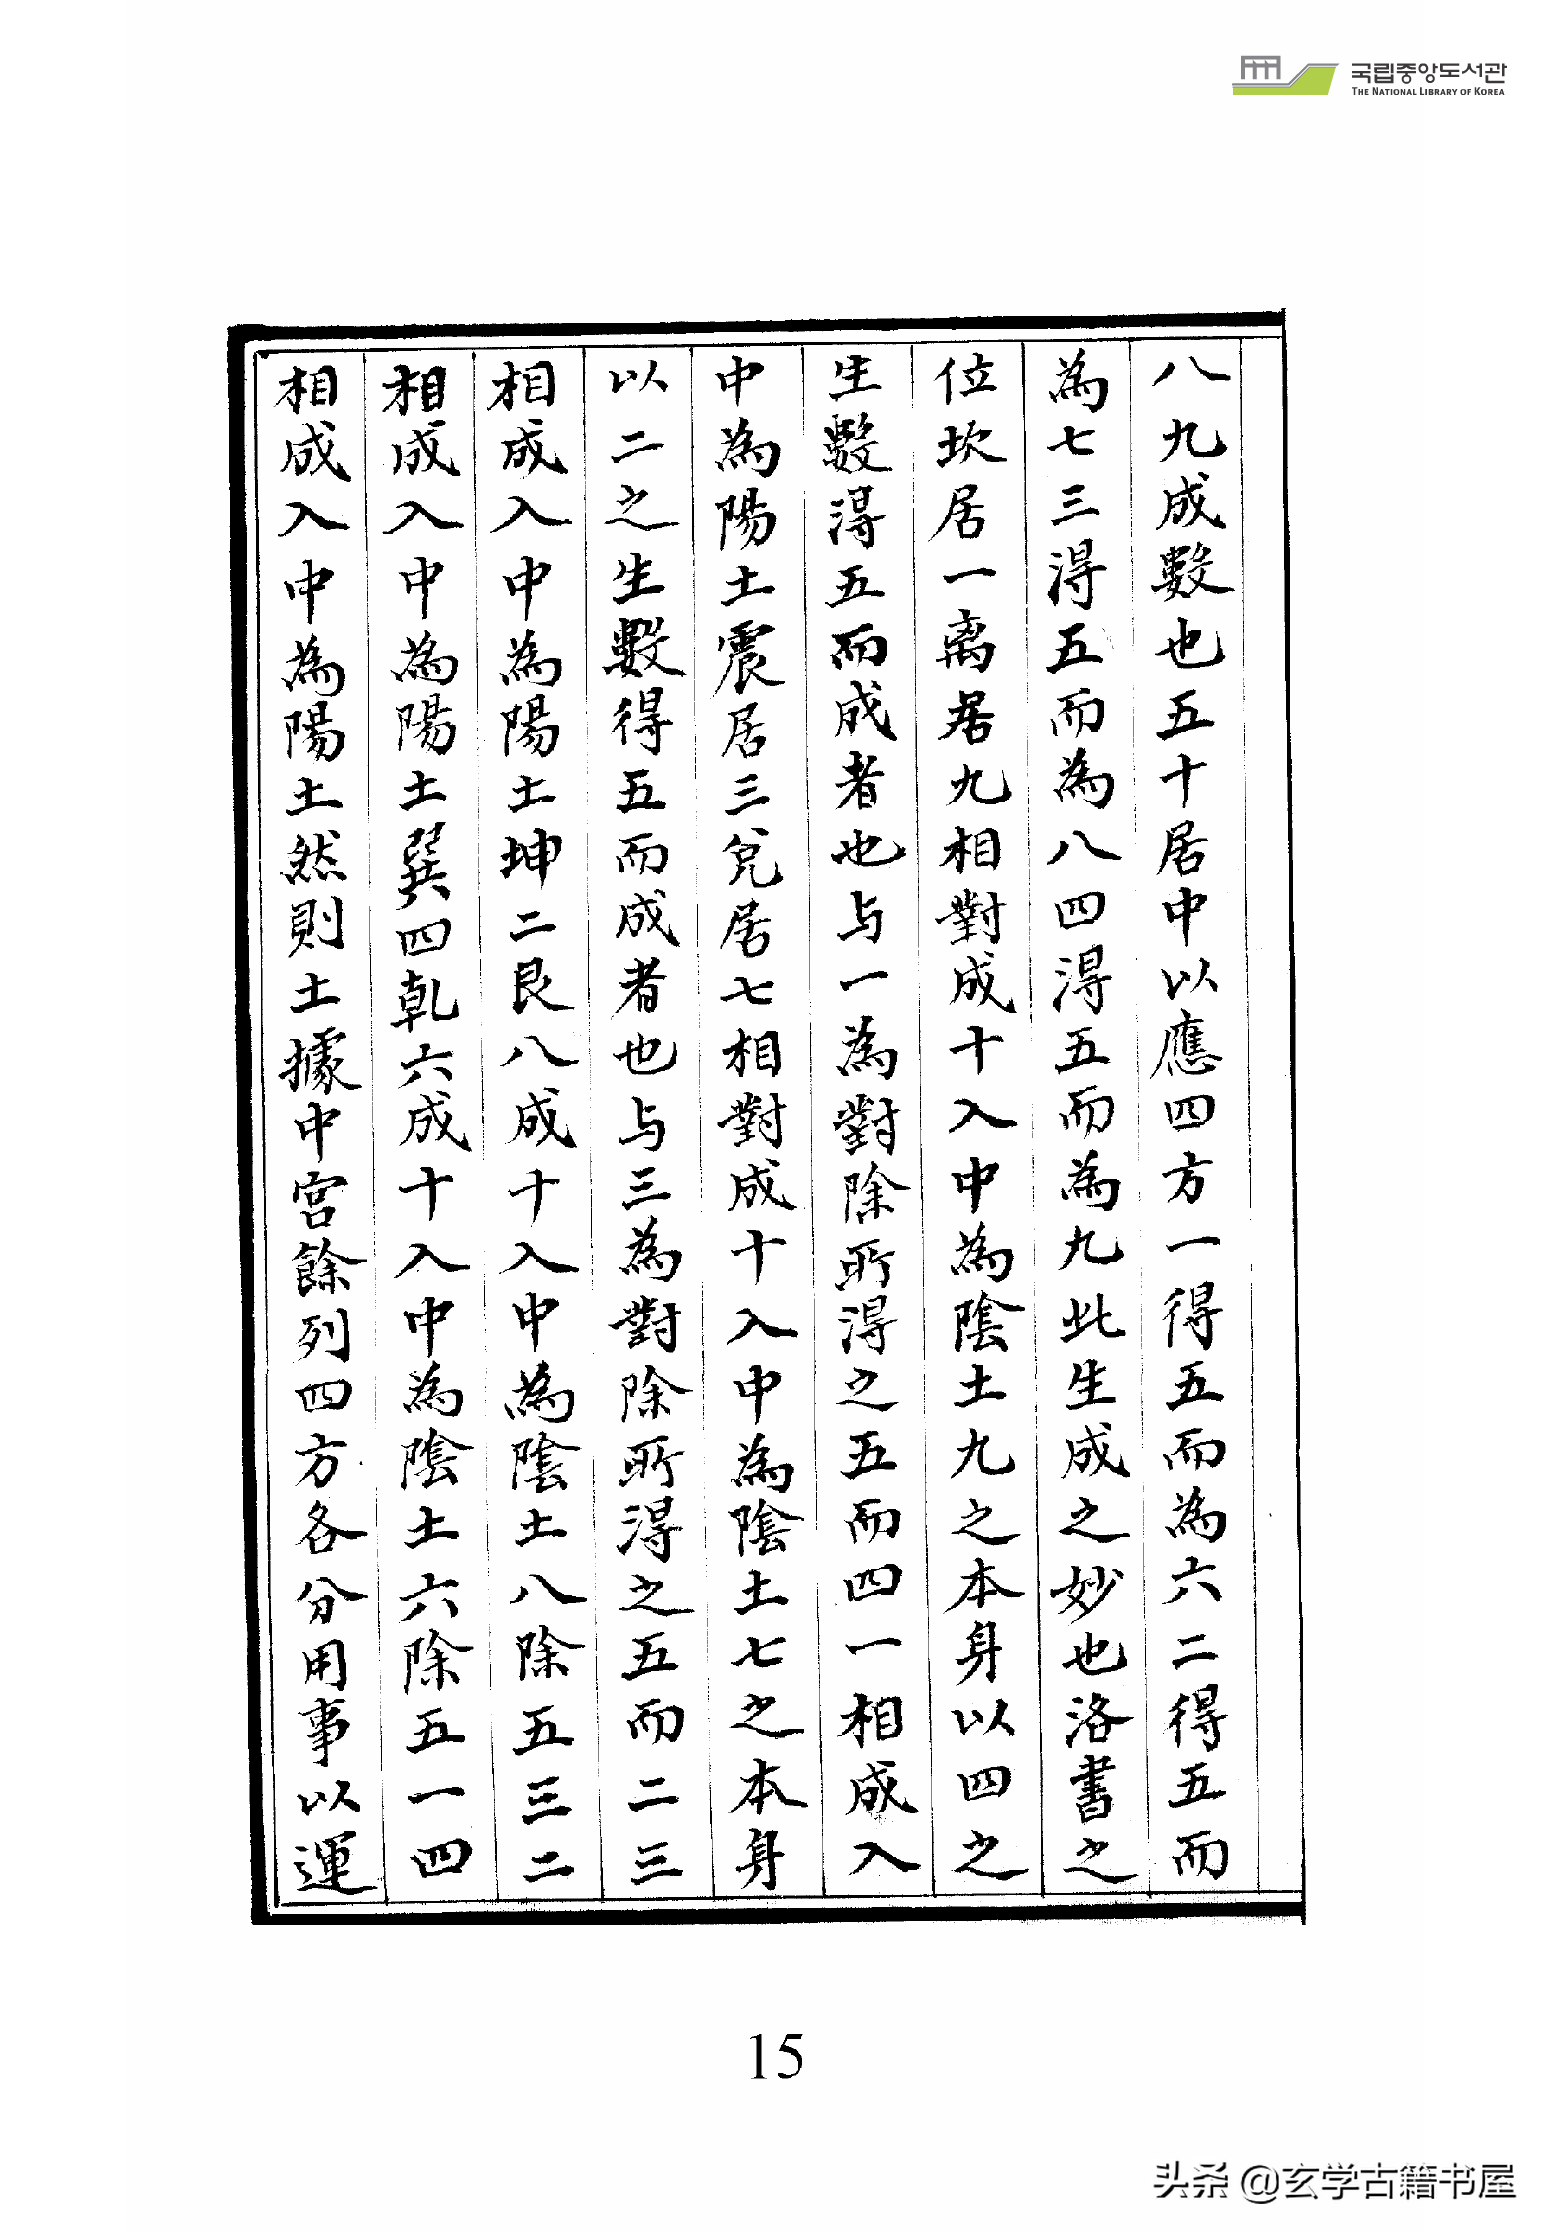 국립중앙도서관
THE NATIONAL LIBRARY OF KOREA
八九成數也五十居中以應四方一得五而為六二得五而
為七三得五而為八四得五而為九此生成之妙也洛書之
位坎居一离居九相對成十入中為陰土九之本身以四之
生數得五而成者也与一為對除所得之五而四一相成入
中為陽土震居三兌居七相對成十入中為陰土七之本身
以二之生數得五而成者也与三為對除所得之五而二三
相成入中為陽土坤二艮八成十入中為陰土八除五三二
相成入中為陽土巽四乾六成十入中為陰土六除五一四
相成入中為陽土然則土據中宮餘列四方各分用事以運
15
头条 @玄学古籍书屋